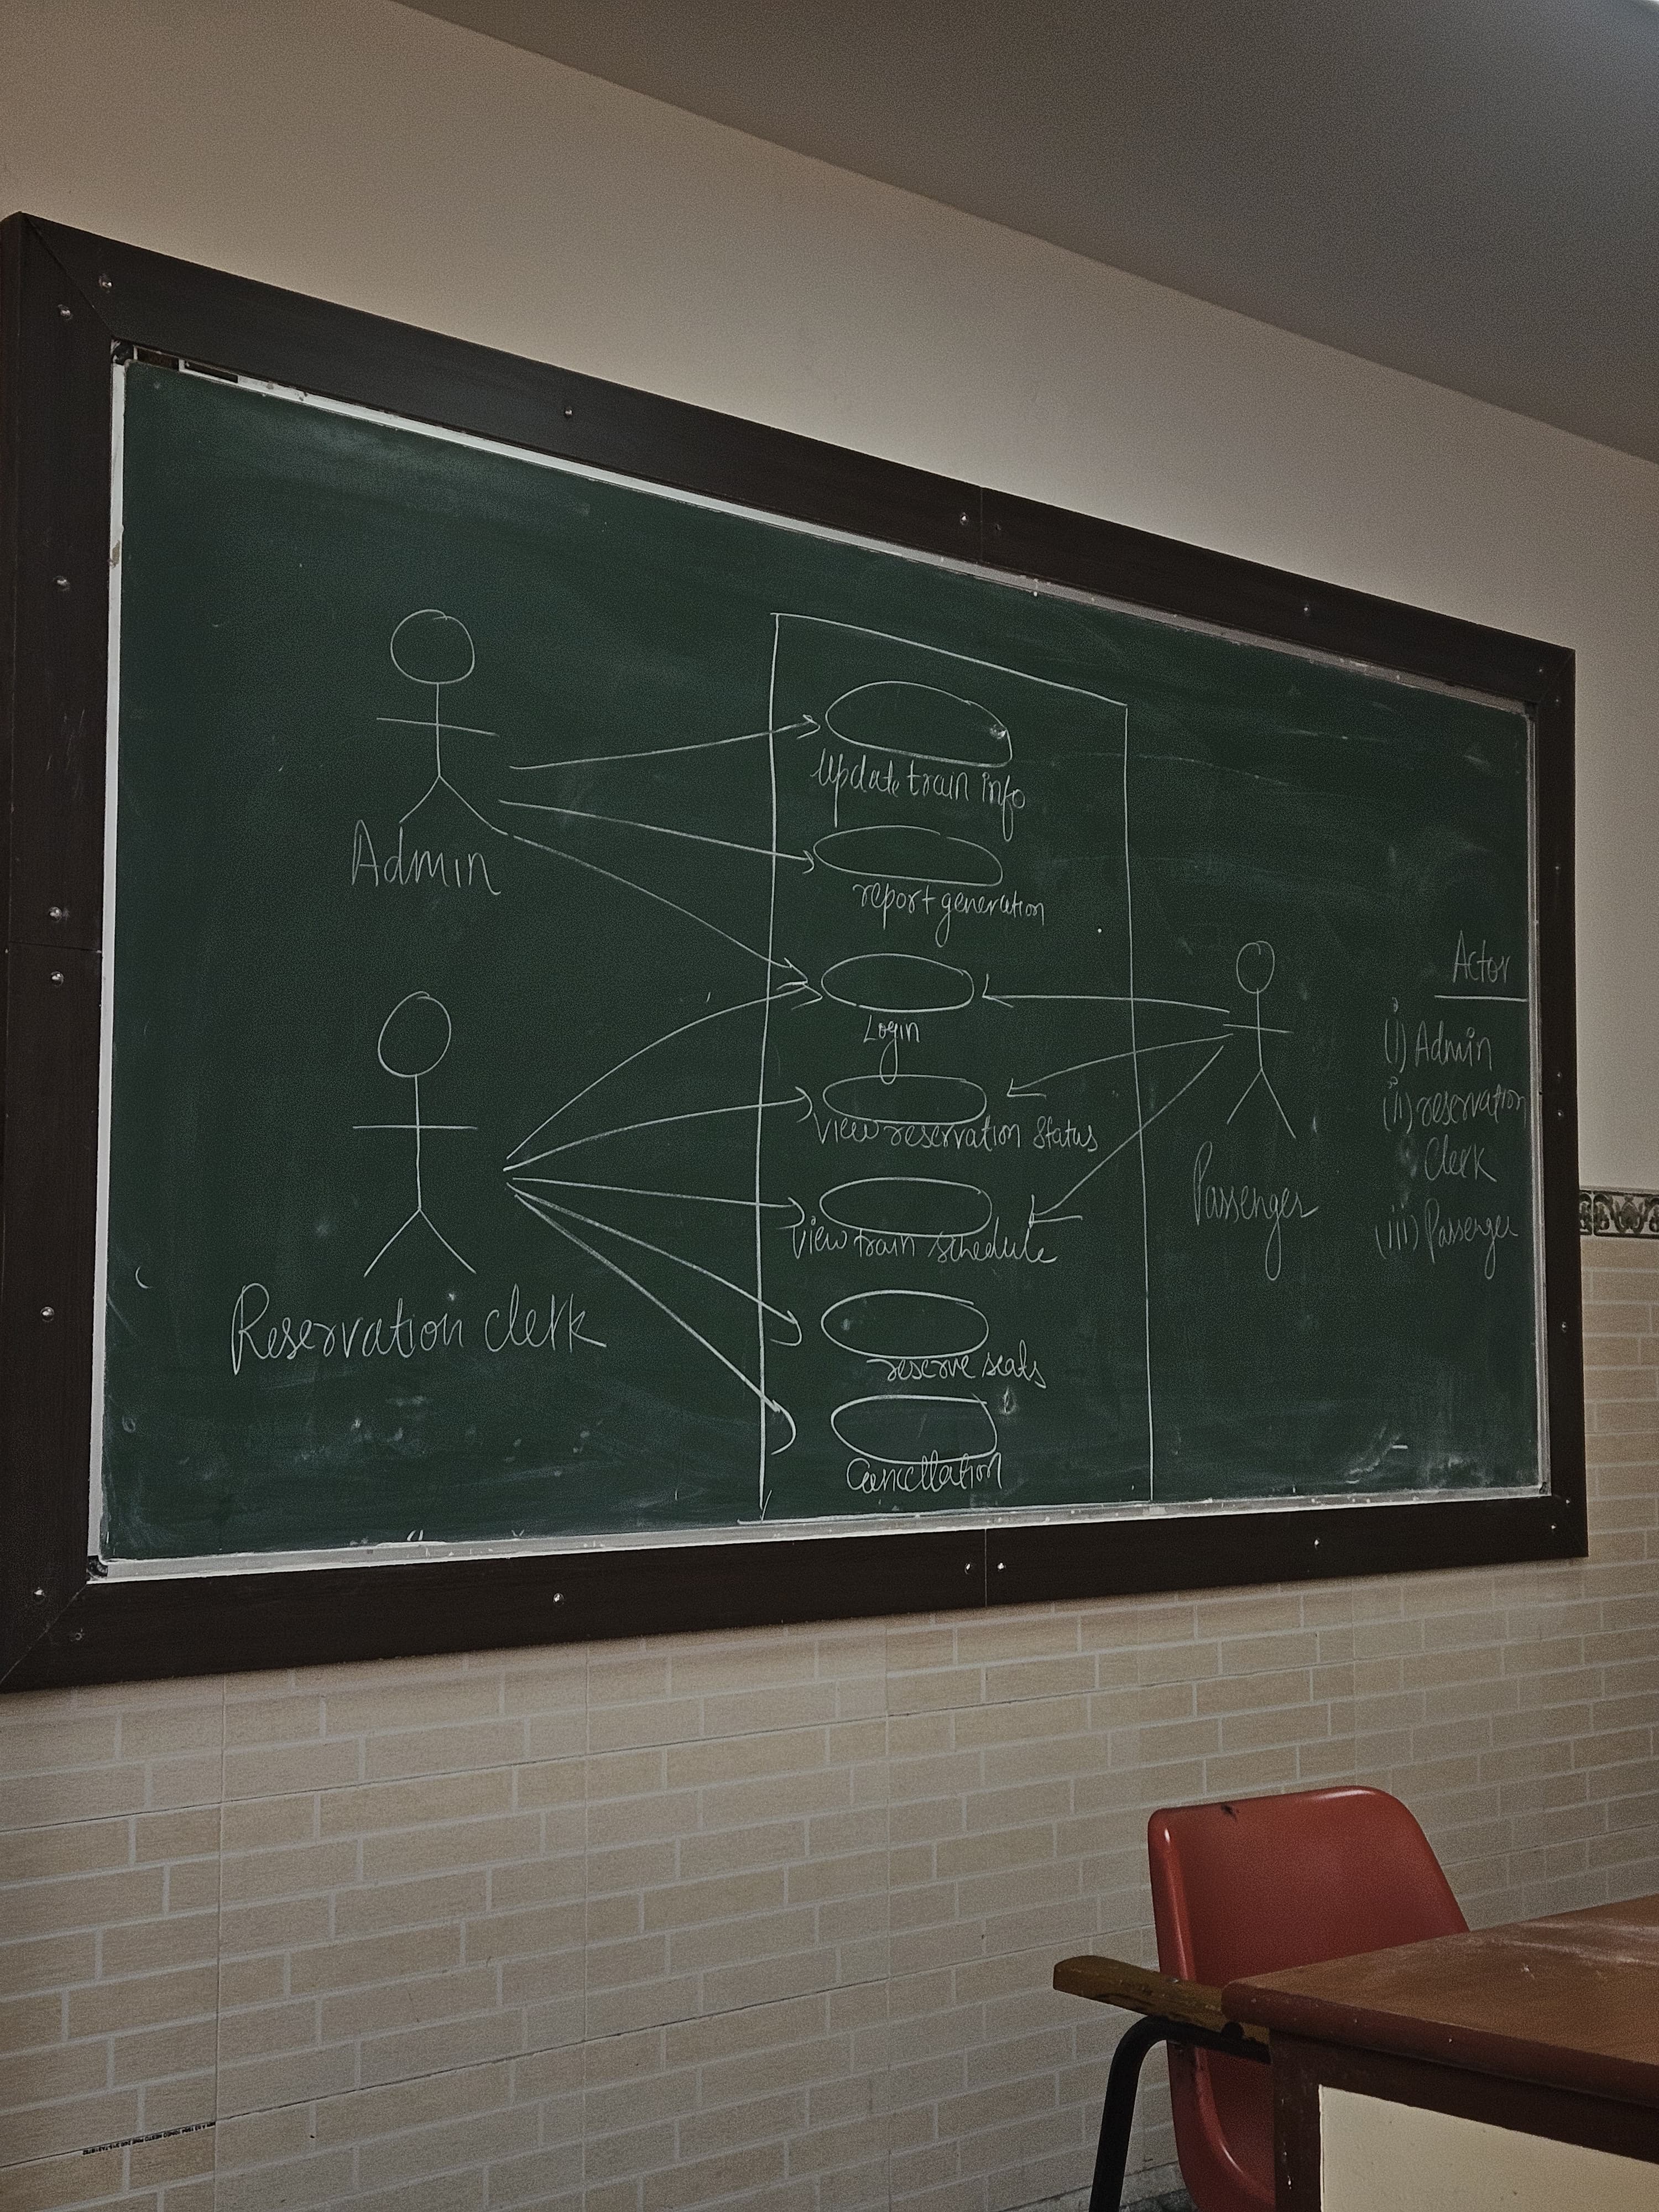 Admin
Reservation clerk
Update train info
report generation
Login
View reservation Status
View train schedule
reserve seats
Cancellation
Passenger
Actor
(i) Admin
(ii) reservation
Clerk
(iii) Passenger